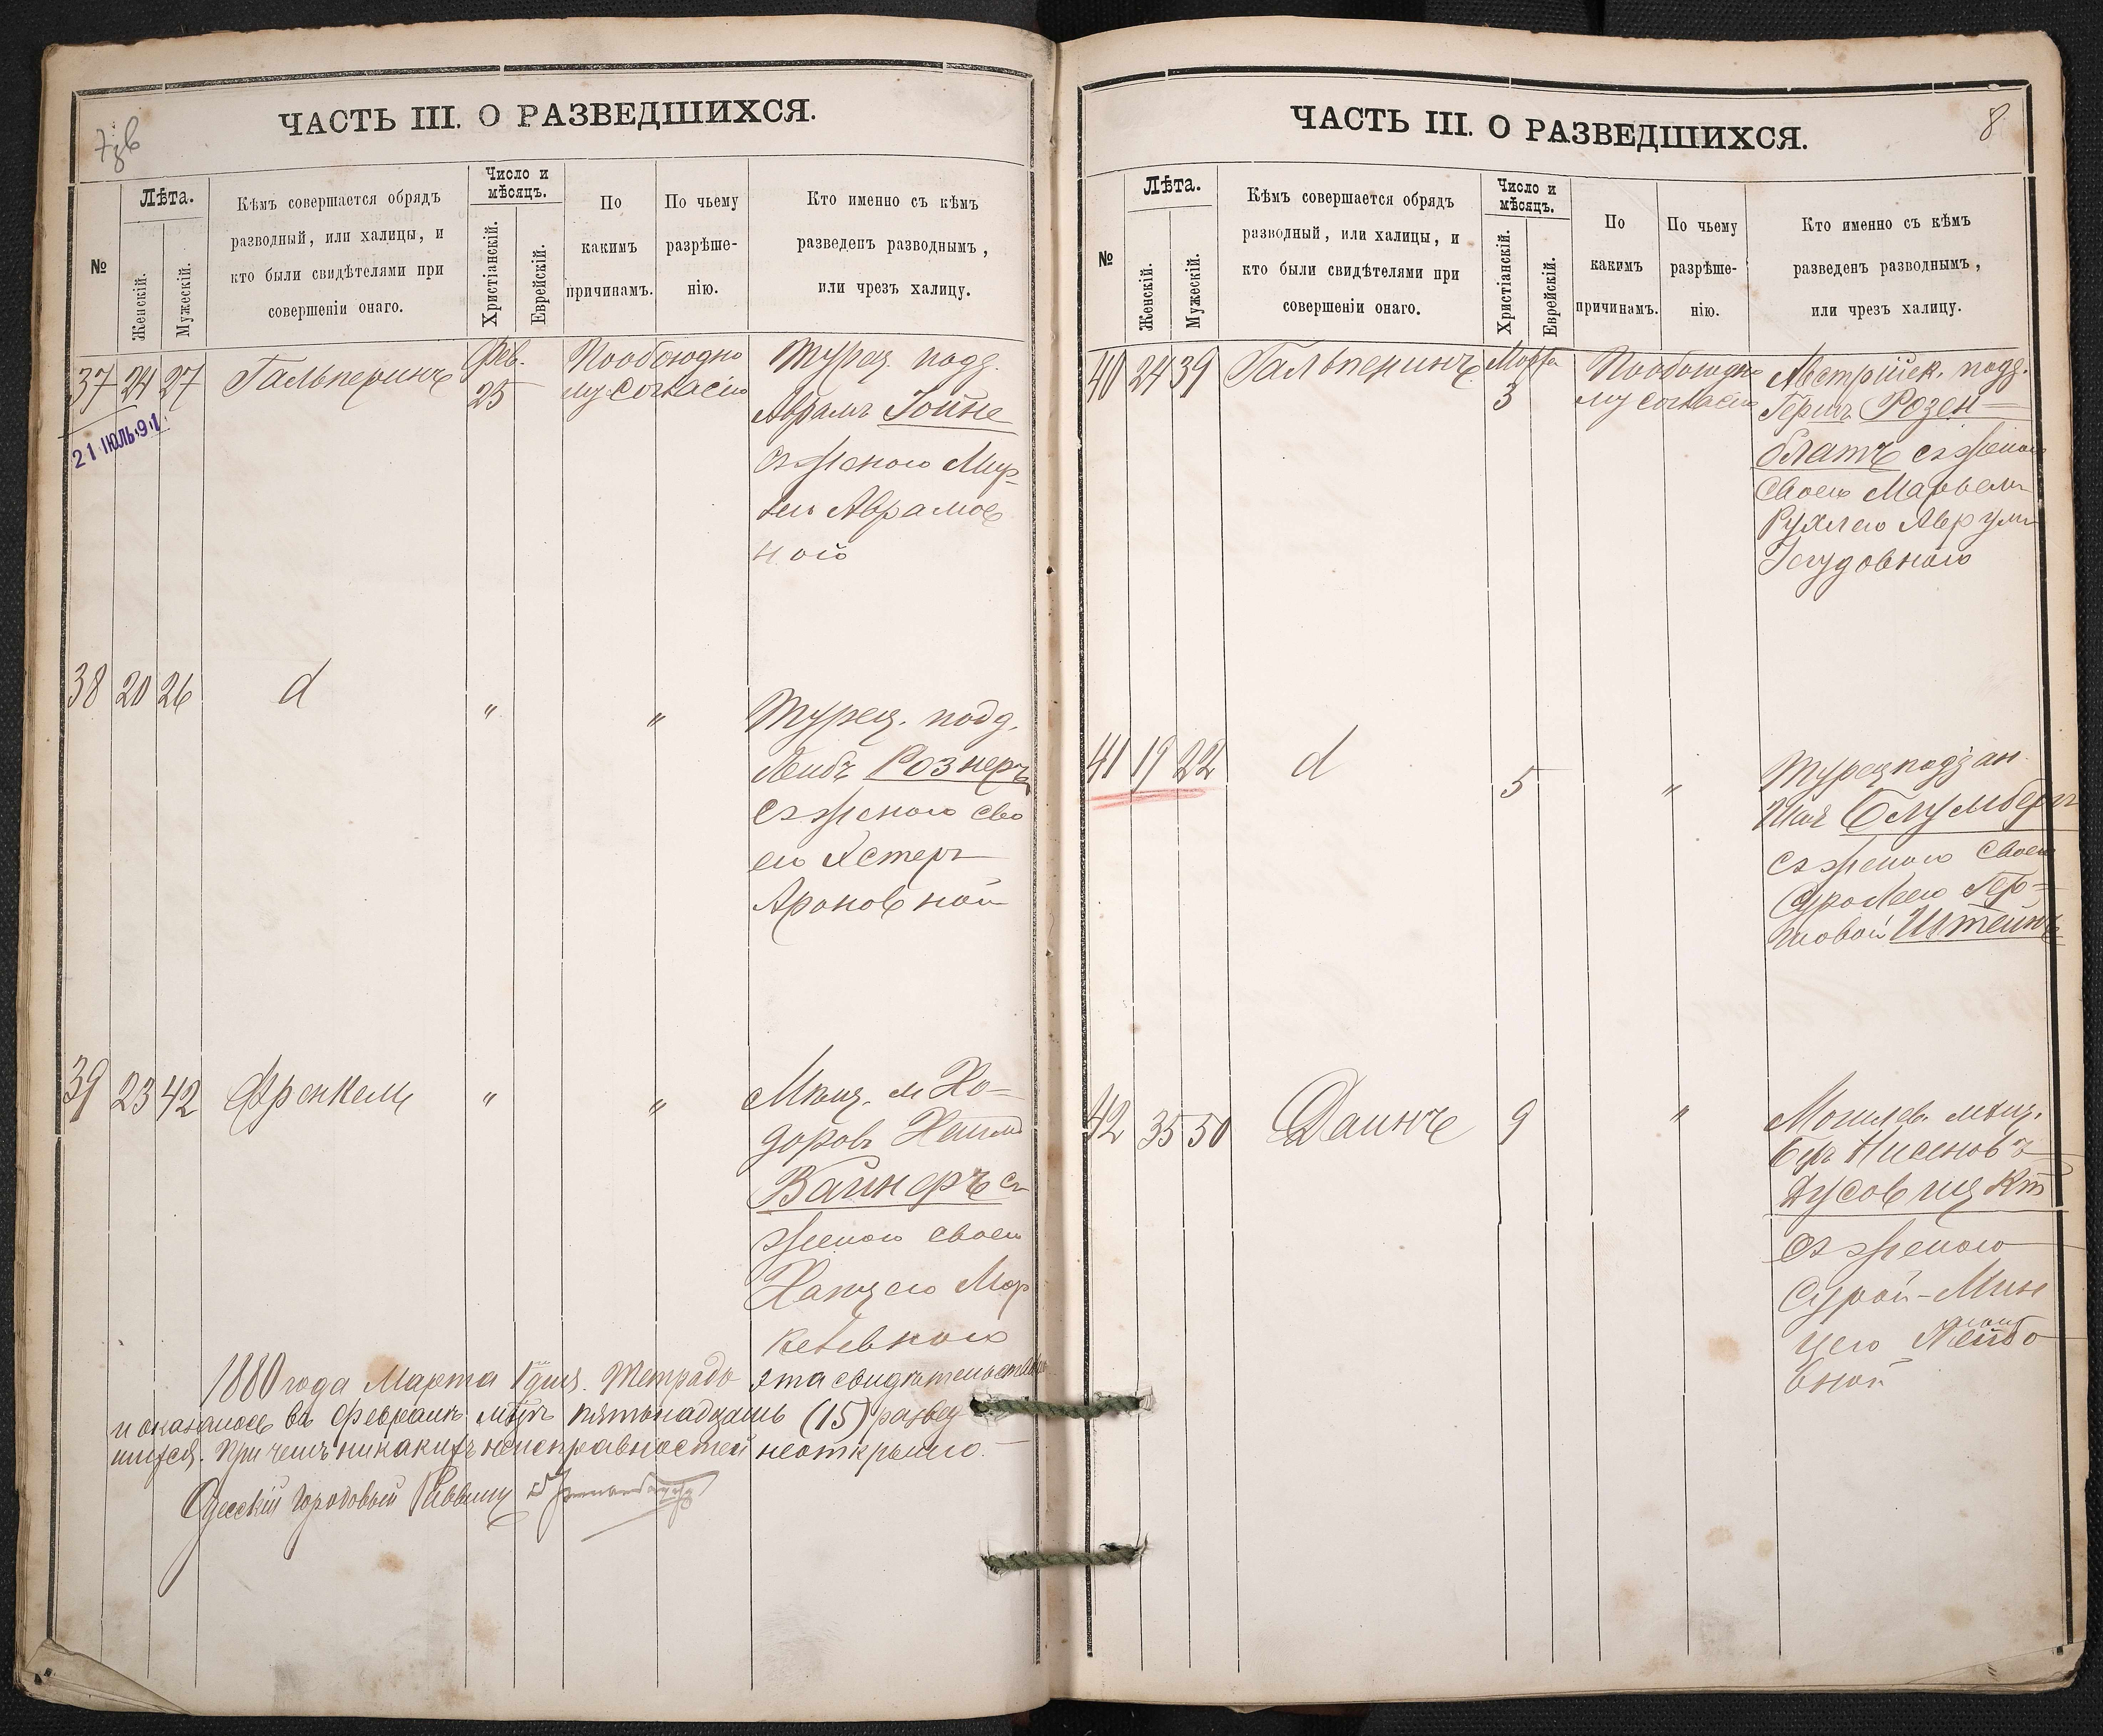 7 об
ЧАСТЬ III. О РАЗВЕДШИХСЯ.
№
Лѣта.
Женскій.
Мужескій.
Кѣмъ совершается обрядъ
разводный, или халицы, и
кто были свидѣтелями при
совершеніи онаго.
Число и
мѣсяцъ.
Христіанскій.
Еврейскій.
По
какимъ
причинамъ.
По чьему
разрѣше-
нію.
Кто именно съ кѣмъ
разведенъ разводнымъ,
или чрезъ халицу.
37 24 27 Гальперинъ Фев. 25
По обоюдно
му согласію
Турец. подд.
Аврамъ Іойне
съ женою Мир-
Аврамов
ною
21 ІЮЛЬ 91
38 20 26 d " "
Турец. подд.
Лейбъ Рознеръ
съ женою сво
ею Эстеръ
Ароновной
39 23 42 Френкель " "
Мѣщ. м Хо-
доровъ Хаимъ
Вайнеръ съ
женою своею
Ханцею Мор
ковною
1880 года Марта 1 дня. Тетрадь эта свидѣтельствована
и оказалось въ Февралѣ мѣцѣ пятьнадцать (15) развед
шихся. При чемъ никакихъ неисправностей неоткрыто.
Одесскій Городовый Раввинъ
8
ЧАСТЬ III. О РАЗВЕДШИХСЯ.
№
Лѣта.
Женскій.
Мужескій.
Кѣмъ совершается обрядъ
разводный, или халицы, и
кто были свидѣтелями при
совершеніи онаго.
Число и
мѣсяцъ.
Христіанскій.
Еврейскій.
По
какимъ
причинамъ.
По чьему
разрѣше-
нію.
Кто именно съ кѣмъ
разведенъ разводнымъ,
или чрезъ халицу.
40 24 39 Гальперинъ Марта 3
По обоюдно
му согласію
Австрійск. подд.
Гершъ Розен-
блатъ съ женою
своею
Рухлею Аврумъ
Іегудовною
41 19 22 d 5 "
Турец поддан
Блумберг
съ женою своею
Гер-
шовой Штейнъ
42 35 50 Даинъ 9 "
Могилев. мѣщ.
Беръ Нисеновъ
съ женою
Сурой-Мин
цею Лейбо
вной